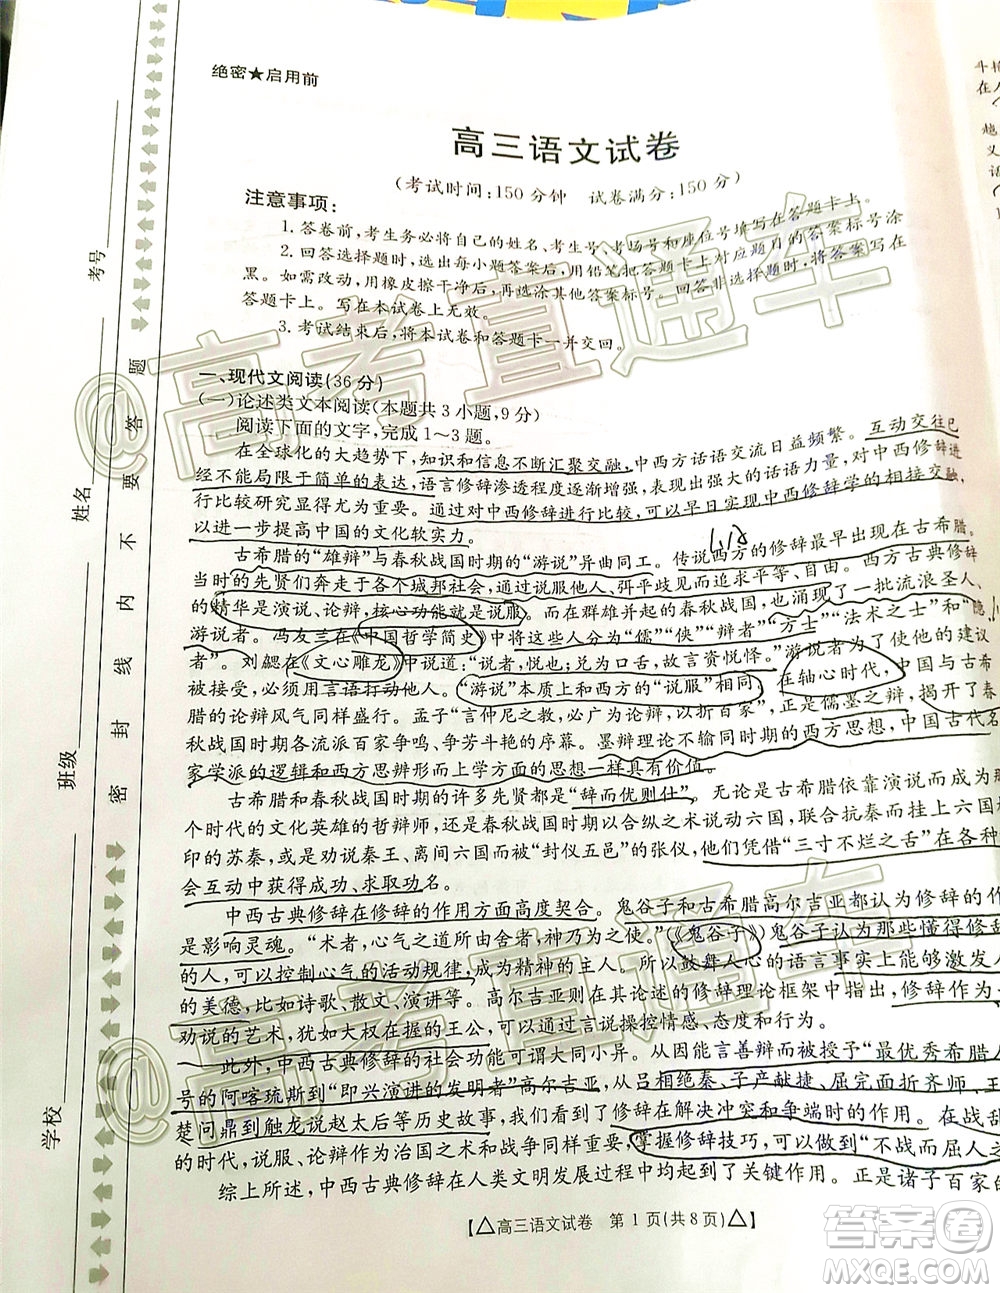 绝密★启用前
高三语文试卷
(考试时间:150分钟 试卷满分:150分)
注意事项:
1.答卷前,考生务必将自己的姓名、考生号、考场号和座位号填写在答题卡上。
2.回答选择题时,选出每小题答案后,用铅笔把答题卡上对应题目的答案标号涂
黑。如需改动,用橡皮擦干净后,再选涂其他答案标号。回答非选择题时,将答案写在
答题卡上。写在本试卷上无效。
3.考试结束后,将本试卷和答题卡一并交回。
一、现代文阅读(36分)
(一)论述类文本阅读(本题共3小题,9分)
阅读下面的文字,完成1~3题。
在全球化的大趋势下,知识和信息不断汇聚交融,中西方话语交流日益频繁。互动交往已
经不能局限于简单的表达,语言修辞渗透程度逐渐增强,发挥出强大的话语力量。对中西修辞进
行比较研究显得尤为重要。通过对中西修辞进行比较,可以早日实现中西修辞学的相互交融,
以进一步提高中国的文化软实力。
古希腊的“雄辩”与春秋战国时期的“游说”异曲同工。传说西方的修辞最早出现在古希腊。
当时的先贤们奔走于各个城邦社会,通过说服他人、弭平歧见而追求平等、自由。西方古典修辞
的精华是演说、论辩,核心功能就是说服。而在群雄并起的春秋战国,也涌现了一批流浪圣人、
游说者。冯友兰在《中国哲学简史》中将这些人分为“儒”“侠”“辩者”“方士”“法术之士”和“隐
者”。刘勰在《文心雕龙》中说道:“说者,悦也;兑为口舌,故言资悦怿。”游说者为使他们的建议
被接受,必须用言语打动他人。“游说”本质上和西方的“说服”相同。在轴心时代,中国与古希
腊的论辩风气同样盛行。孟子“言仲尼之教,必广为论辩,以折百家”,正是儒墨之辩,揭开了
春秋战国时期各流派百家争鸣、争芳斗艳的序幕。墨辩理论不输同时期的西方思想,中国古代名
家学派的逻辑和西方思辨形式展开的思想一样具有价值。
古希腊和春秋战国时期的许多先贤都是“辞而优则仕”。无论是古希腊依靠演说而成为那
个时代的文化英雄的哲辩师,还是春秋战国时期以合纵之术游说六国,联合抗秦并佩六国相
印的苏秦,或是劝说秦王、离间六国而被“封仪五邑”的张仪,他们凭借“三寸不烂之舌”在各种社
会互动中获得成功、求取功名。
中西古典修辞在修辞的作用方面高度契合。鬼谷子和古希腊高尔吉亚都认为修辞的
是影响灵魂。“术者,心气之道所由舍者,神乃为之使。”(《鬼谷子》)鬼谷子认为那些懂得修辞
的人,可以控制心气的活动规律,成为精神的主人。所以鼓舞人心的语言事实上能够影响人
的美德,比如诗歌、散文、演讲等。高尔吉亚则在他的修辞理论框架中指出,修辞作为一种
劝说的艺术,犹如大权在握的王公,能够通过言说操控情感、态度和行为。
此外,中西古典修辞的社会功能可谓大同小异。从能言善辩而被授予“最优秀希腊人”称
号的阿喀琉斯到“即兴演讲的发明者”高尔吉亚,从吕相绝秦、子产献捷、屈完面折齐师、王孙满对
楚问鼎到触龙说赵太后等历史故事,我们看到了修辞在解决冲突和争端时的作用。在战乱
的时代,说服、论辩与政治和战争同样重要,掌握修辞技巧,可以做到“不战而屈人之
综上所述,中西古典修辞在人类文明发展过程中均起到了关键作用。正是诸子百家的
【△高三语文试卷 第1页(共8页)△】
学校
班级
姓名
考号
密 封 线 内 不 要 答 题
@高考直通车
@高考直通车
答案卷
MXQE.COM